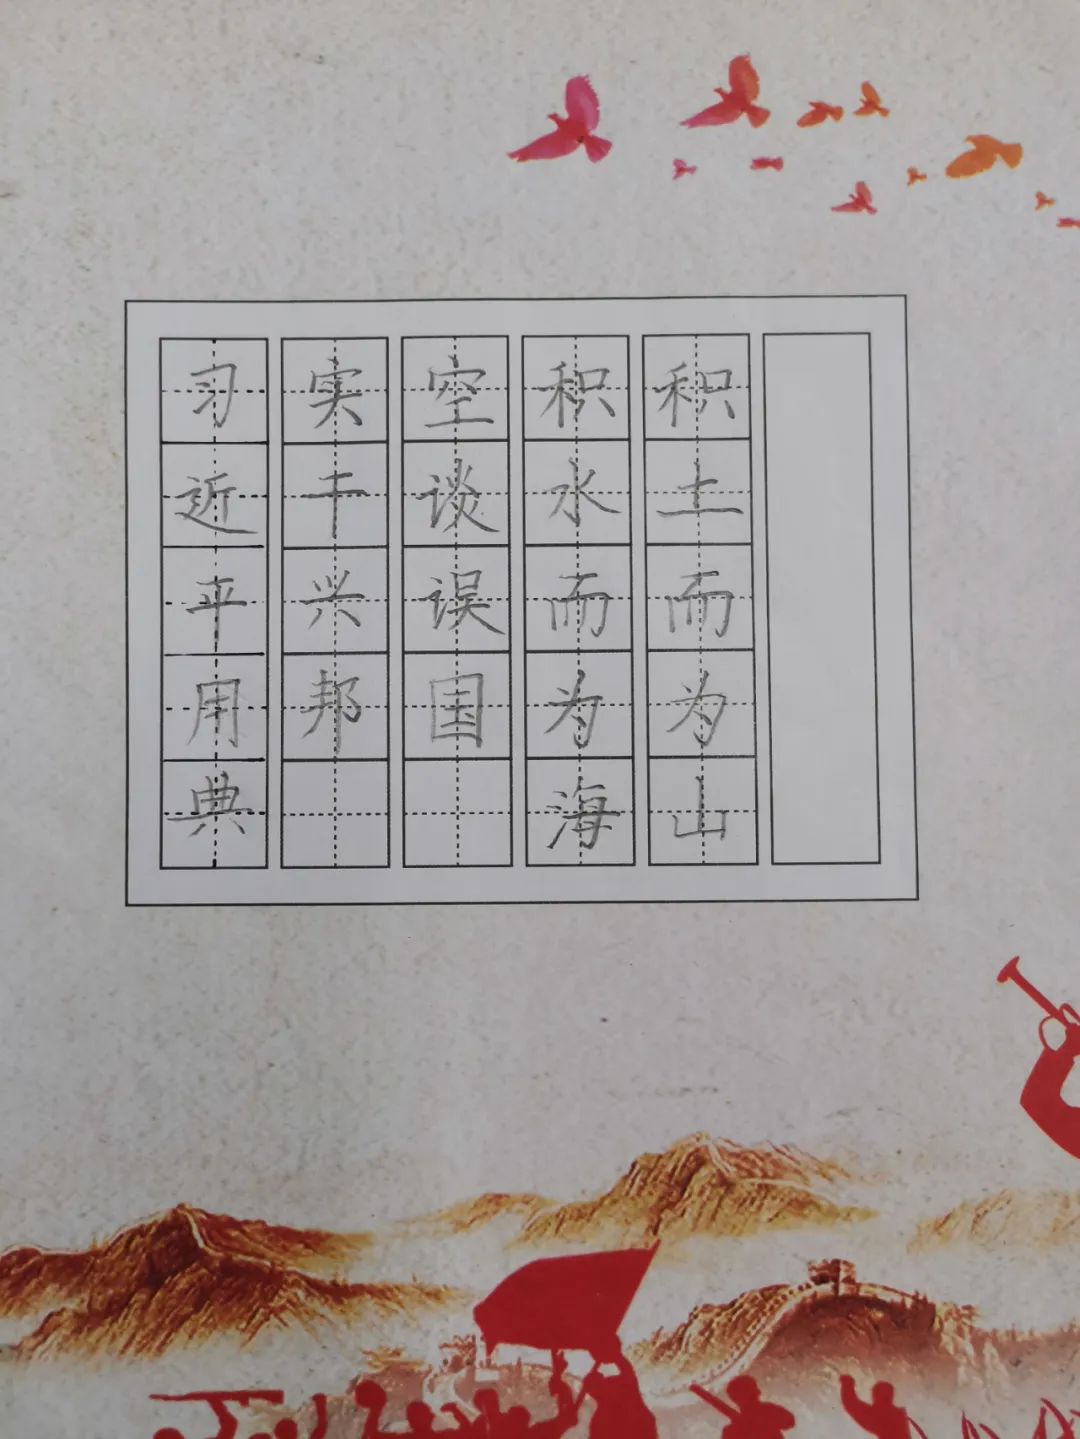 积土而为山
积水而为海
空谈误国
实干兴邦
习近平用典